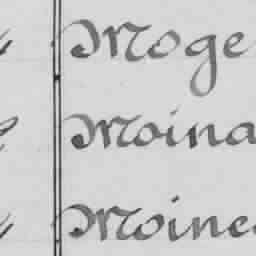 Moge
Moina
Moine